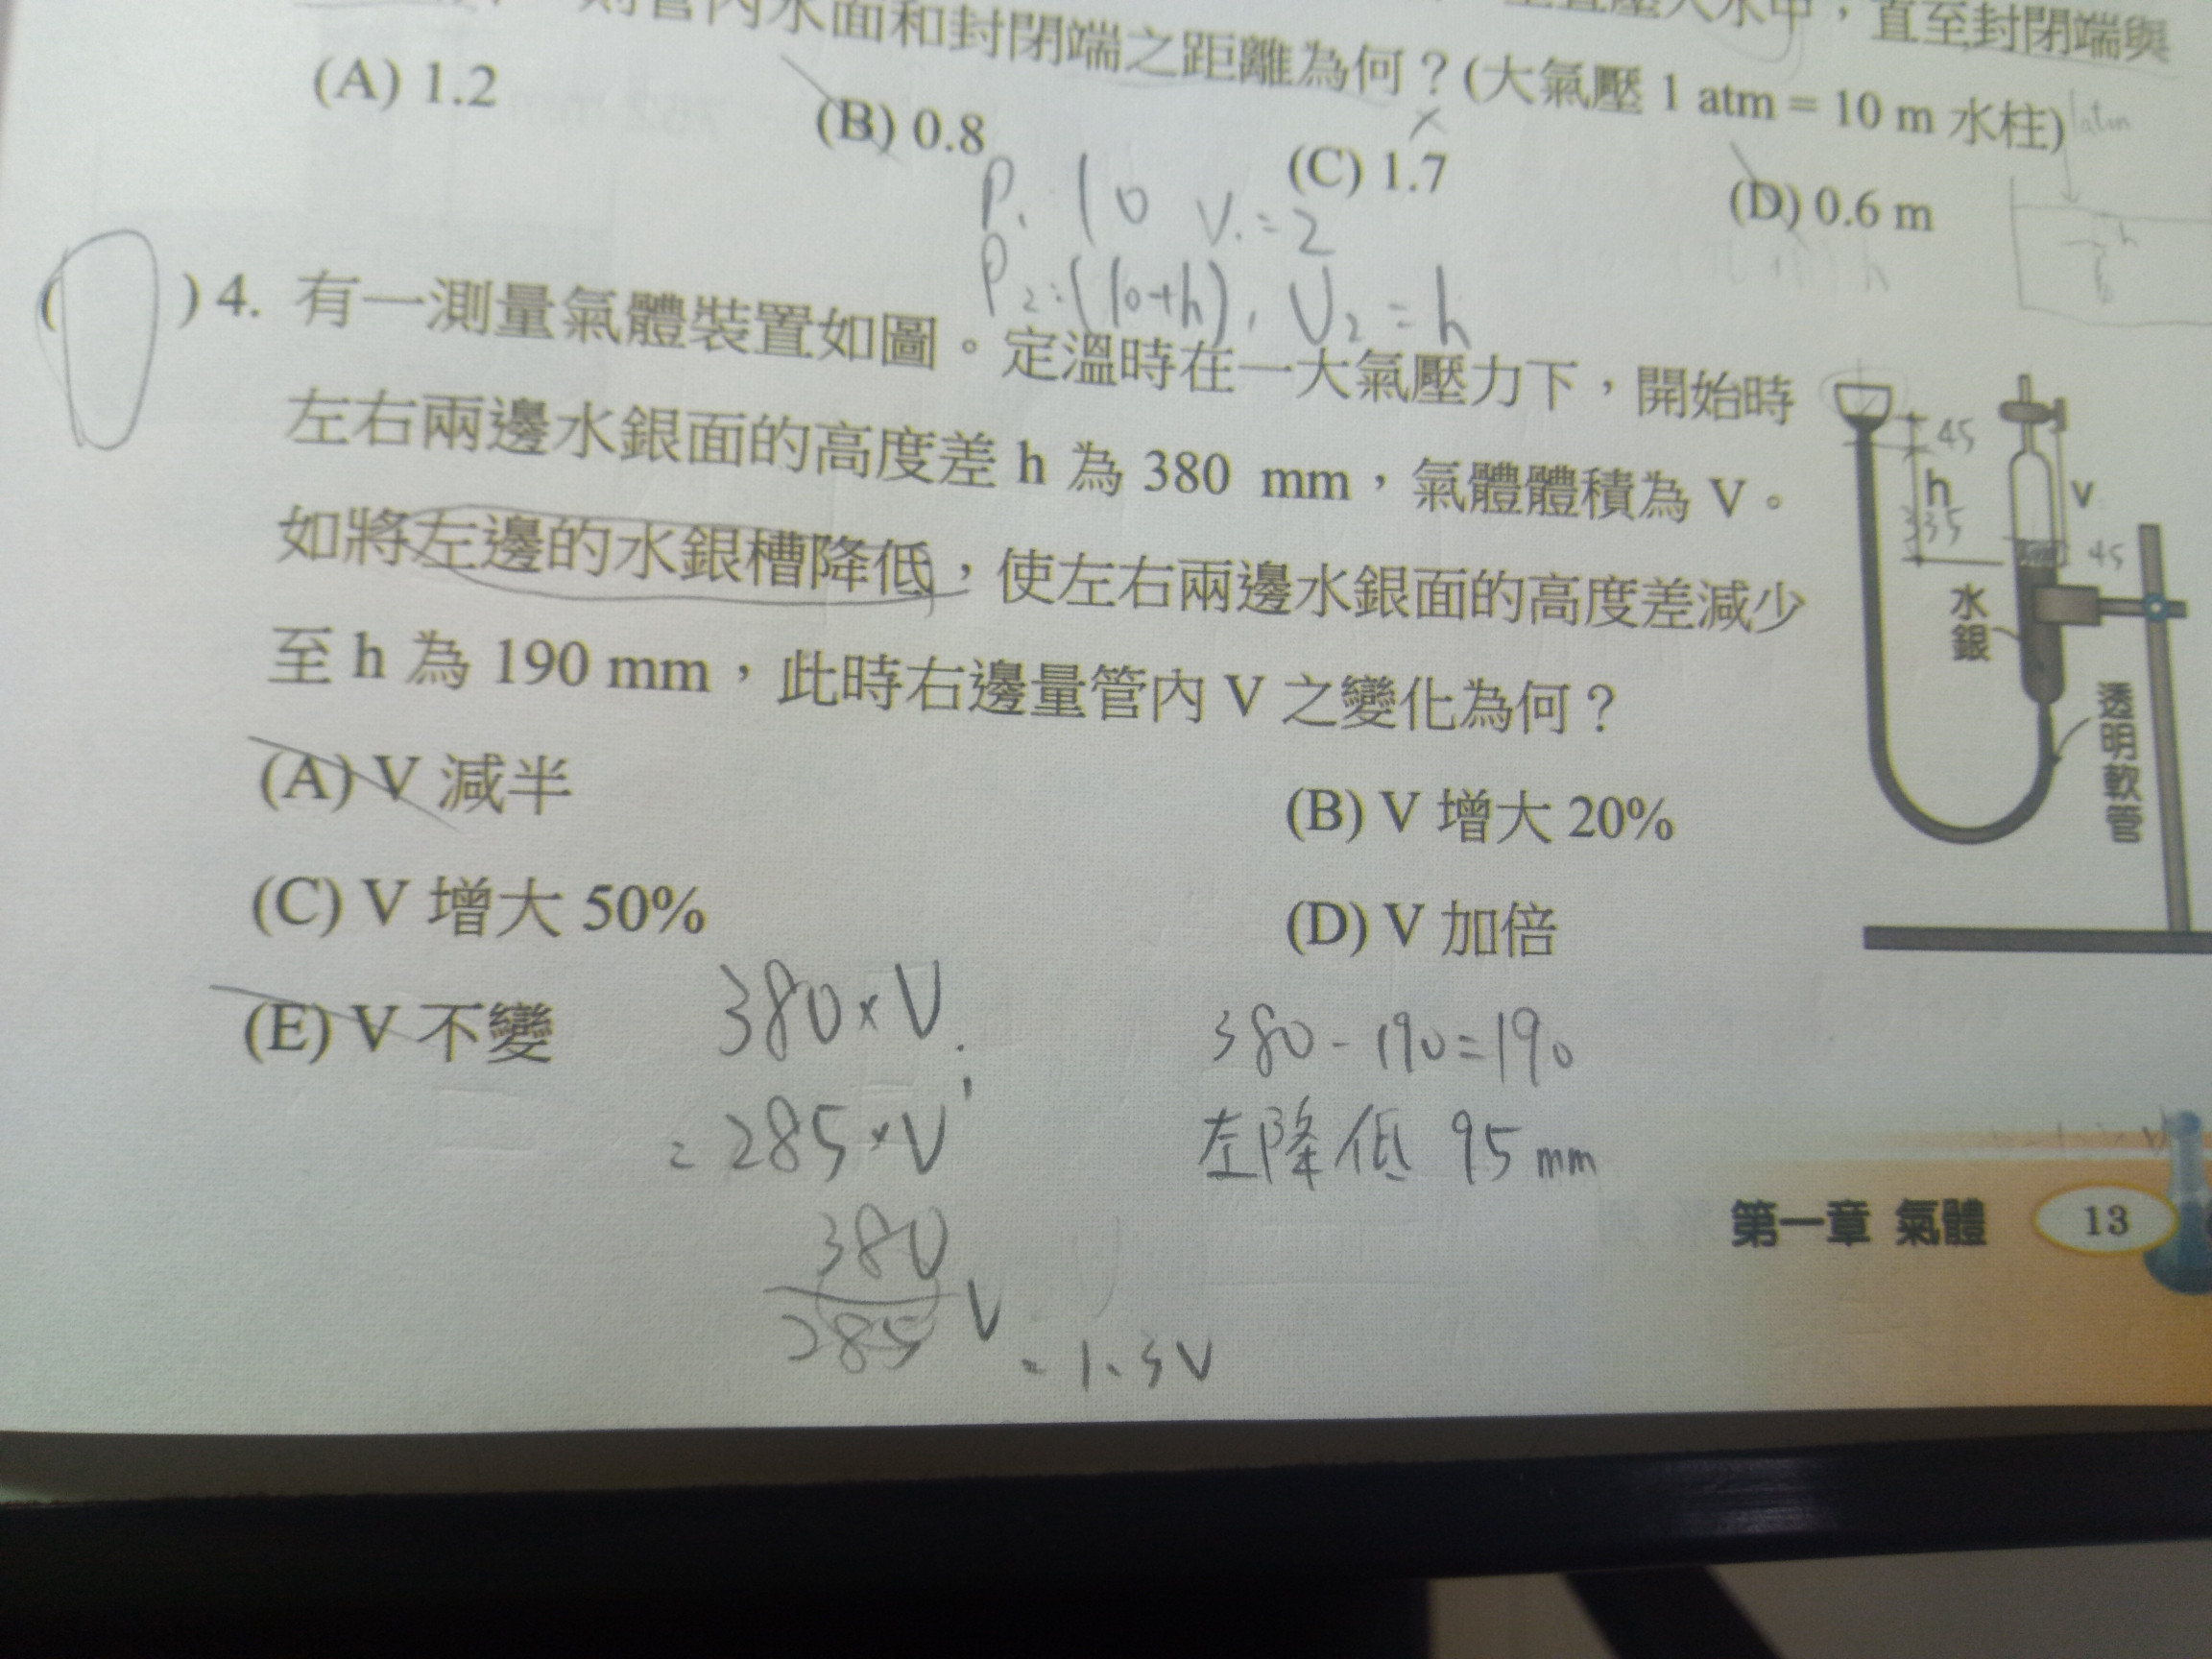 則管內水面和封閉端之距離為何？(大氣壓 1 atm = 10 m 水柱)
水中，直至封閉端與
(A) 1.2 (B) 0.8 (C) 1.7 (D) 0.6 m
1atm
h
P₁ 10 V₁ = 2
P₂ = (10+h), V₂ = h
( ) 4. 有一測量氣體裝置如圖。定溫時在一大氣壓力下，開始時
左右兩邊水銀面的高度差 h 為 380 mm，氣體體積為 V。
如將左邊的水銀槽降低，使左右兩邊水銀面的高度差減少
至 h 為 190 mm，此時右邊量管內 V 之變化為何？
45
h
335
V
45
水銀
透明軟管
(A) V 減半 (B) V 增大 20%
(C) V 增大 50% (D) V 加倍
(E) V 不變
380×V
= 285×V'
380
285 V = 1.3V
380-190=190
左降低 95mm
第一章 氣體 13